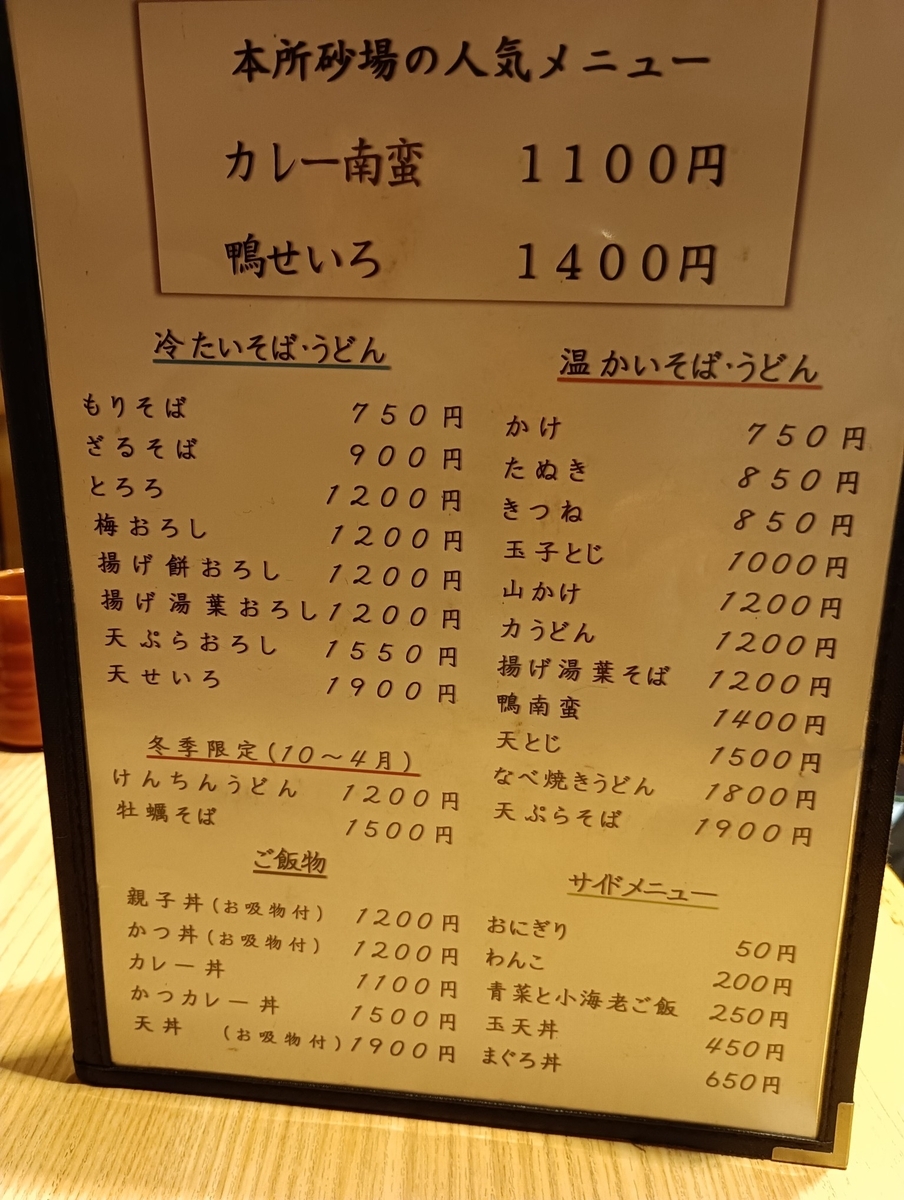 本所砂場の人気メニュー
カレー南蛮 1100円
鴨せいろ 1400円
冷たいそば・うどん
もりそば 750円
ざるそば 900円
とろろ 1200円
梅おろし 1200円
揚げ餅おろし 1200円
揚げ湯葉おろし 1200円
天ぷらおろし 1550円
天せいろ 1900円
冬季限定(10～4月)
けんちんうどん 1200円
牡蠣そば 1500円
ご飯物
親子丼(お吸物付) 1200円
かつ丼(お吸物付) 1200円
カレー丼 1100円
かつカレー丼 1500円
天丼 (お吸物付) 1900円
温かいそば・うどん
かけ 750円
たぬき 850円
きつね 850円
玉子とじ 1000円
山かけ 1200円
力うどん 1200円
揚げ湯葉そば 1200円
鴨南蛮 1400円
天とじ 1500円
なべ焼きうどん 1800円
天ぷらそば 1900円
サイドメニュー
おにぎり 50円
わんこ 200円
青菜と小海老ご飯 250円
玉天丼 450円
まぐろ丼 650円